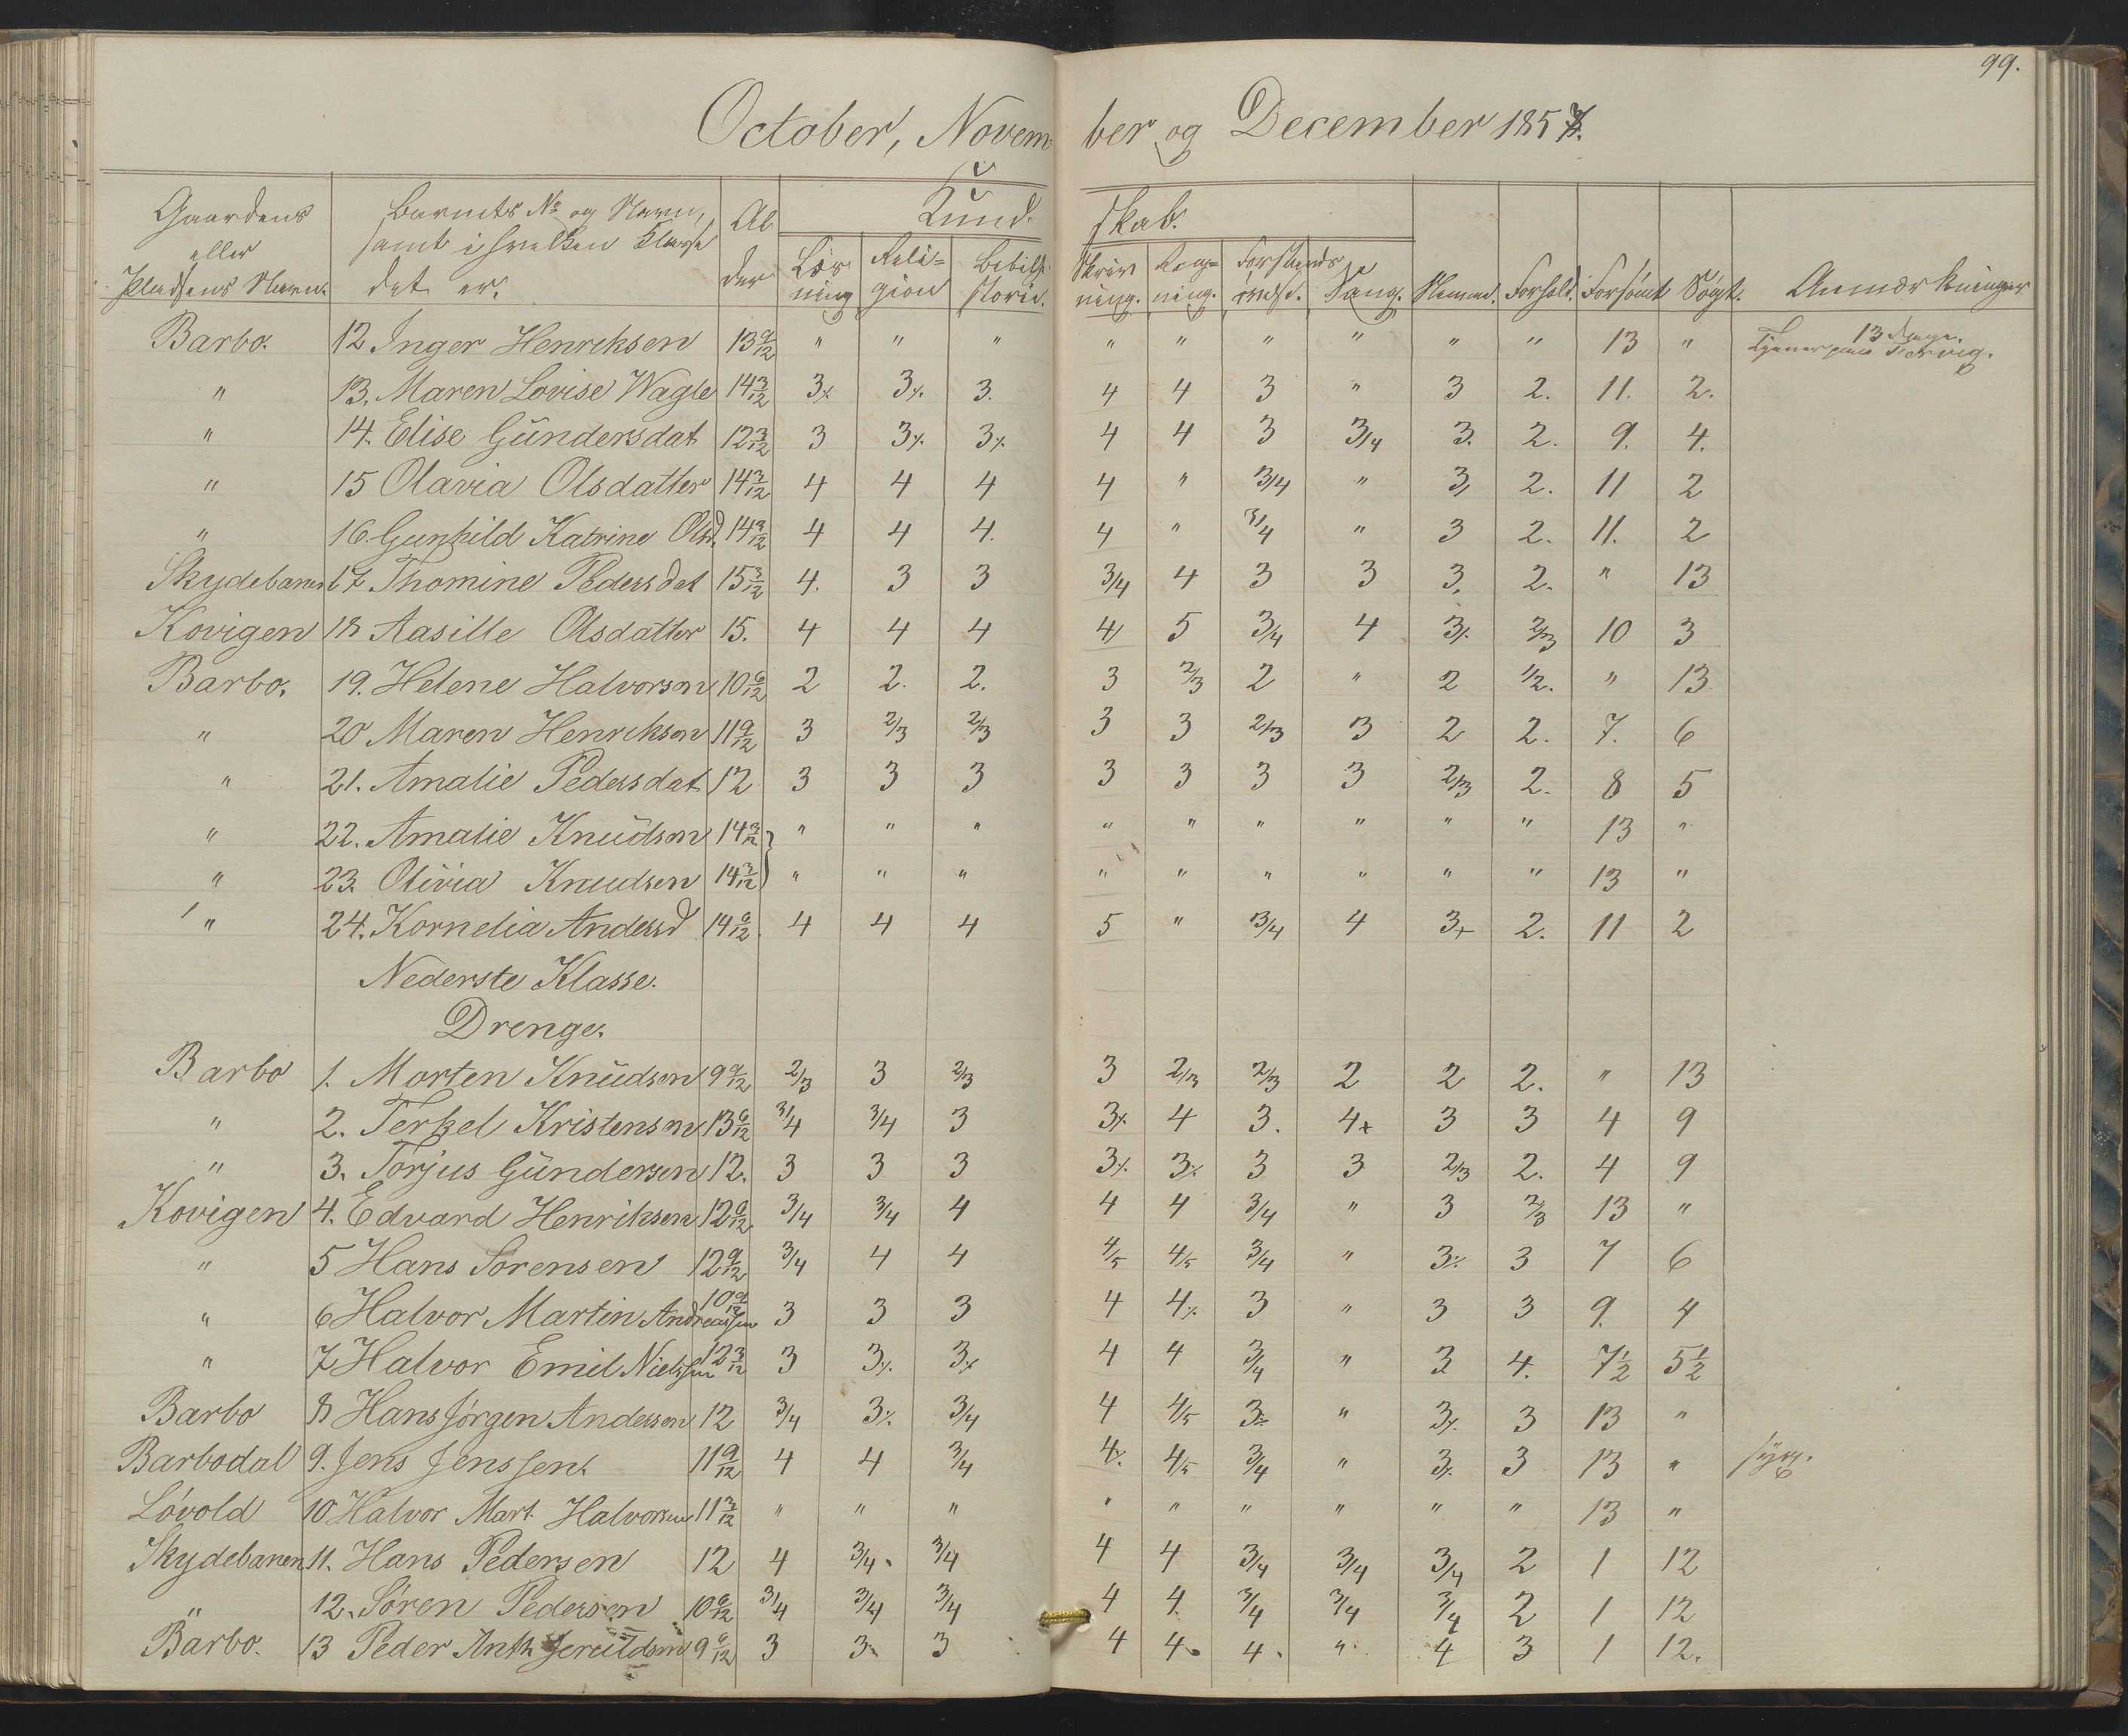 99.
October, Novem- ber og December 1857.
Kund- skab.
Gaardens eller Pladsens Navn. Barnets No og Navn, samt i hvilken Klasse det er. Al der Læs ning Reli= gion Bibelhi storie. Skriv ning. Reg= ning. Forstands øvelse. Sang. Nemme. Forhold. Forsömt Sögt. Anmærkninger
Barbo. 12 Inger Henriksen 13 9/12 " " " " " " " " " 13 " 13 Dage. Tjener paa
" 13. Maren Lovise Wagle 14 3/12 3% 3% 3. 4 4 3 " 3 2. 11. 2.
" 14. Elise Gündersdat 12 3/12 3 3% 3% 4 4 3 3/4 3. 2. 9. 4.
" 15 Olavia Olsdatter 14 3/12 4 4 4 4 " 3/4 " 3, 2. 11 2
" 16. Gunhild Katrine Olsd. 14 3/12 4 4 4. 4 " 3/4 " 3 2. 11. 2
Skydebanen 17 Thomine Pedersdat 15 3/12 4. 3 3 3/4 4 3 3 3. 2. " 13
Kovigen 18 Aasille Olsdatter 15. 4 4 4 4 5 3/4 4 3% 2/3 10 3
Barbo. 19. Helene Halvorsen 10 6/12 2 2. 2. 3 2/3 2 " 2 1/2. " 13
" 20 Maren Henriksen 11 9/12 3 2/3 2/3 3 3 2/3 3 2 2. 7. 6
" 21. Amalie Pedersdat 12 3 3 3 3 3 3 3 2/3 2. 8 5
" 22. Amalie Knüdsen 14 3/12 " " " " " " " " " 13 "
" 23. Olivia Knudsen 14 3/12 " " " " " " " " " 13 "
" 24. Kornelia Andersd 14 9/12 4 4 4 5 " 3/4 4 3+ 2. 11 2
Nederste Klasse.
Drenge.
Barbo 1. Morten Knüdsen 9 9/12 2/3 3 2/3 3 2/3 2/3 2 2 2. " 13
" 2. Terkel Kristensen 13 6/12 3/4 3/4 3 3% 4 3. 4+ 3 3 4 9
" 3. Torjus Gündersen 12. 3 3 3 3% 3% 3 3 2/3 2. 4 9
Kovigen 4. Edvard Henriksen 12 9/12 3/4 3/4 4 4 4 3/4 " 3 2/3 13 "
" 5 Hans Sörensen 12 9/12 3/4 4 4 4/5 4/5 3/4 " 3% 3 7 6
" 6 Halvor Martin Andreassen 10 9/12 3 3 3 4 4% 3 " 3 3 9. 4
" 7 Halvor Emil Nielsen 12 3/12 3 3% 3% 4 4 3/4 " 3 4. 7 1/2 5 1/2
Barbo 8 Hans Jörgen Andersen 12 3/4 3% 3/4 4 4/5 3% " 3% 3 13 "
Barbodal 9. Jens Jenssen. 11 9/12 4 4 3/4 4% 4/5 3/4 " 3% 3 13 " syg.
Lövold 10 Halvor Mart. Halvorsen 11 3/12 " " " " " " " " " 13 "
Skydebanen 11. Hans Pedersen 12 4 3/4. 3/4 4 4 3/4 3/4 3/4 2 1 12
" 12. Sören Pedersen 10 6/12 3/4 3/4 3/4 4 4. 3/4 3/4 3/4 2 1 12
Barbo. 13 Peder Anth 9 6/12 3 3. 3 4 4. 4. " 4 3 1 12.